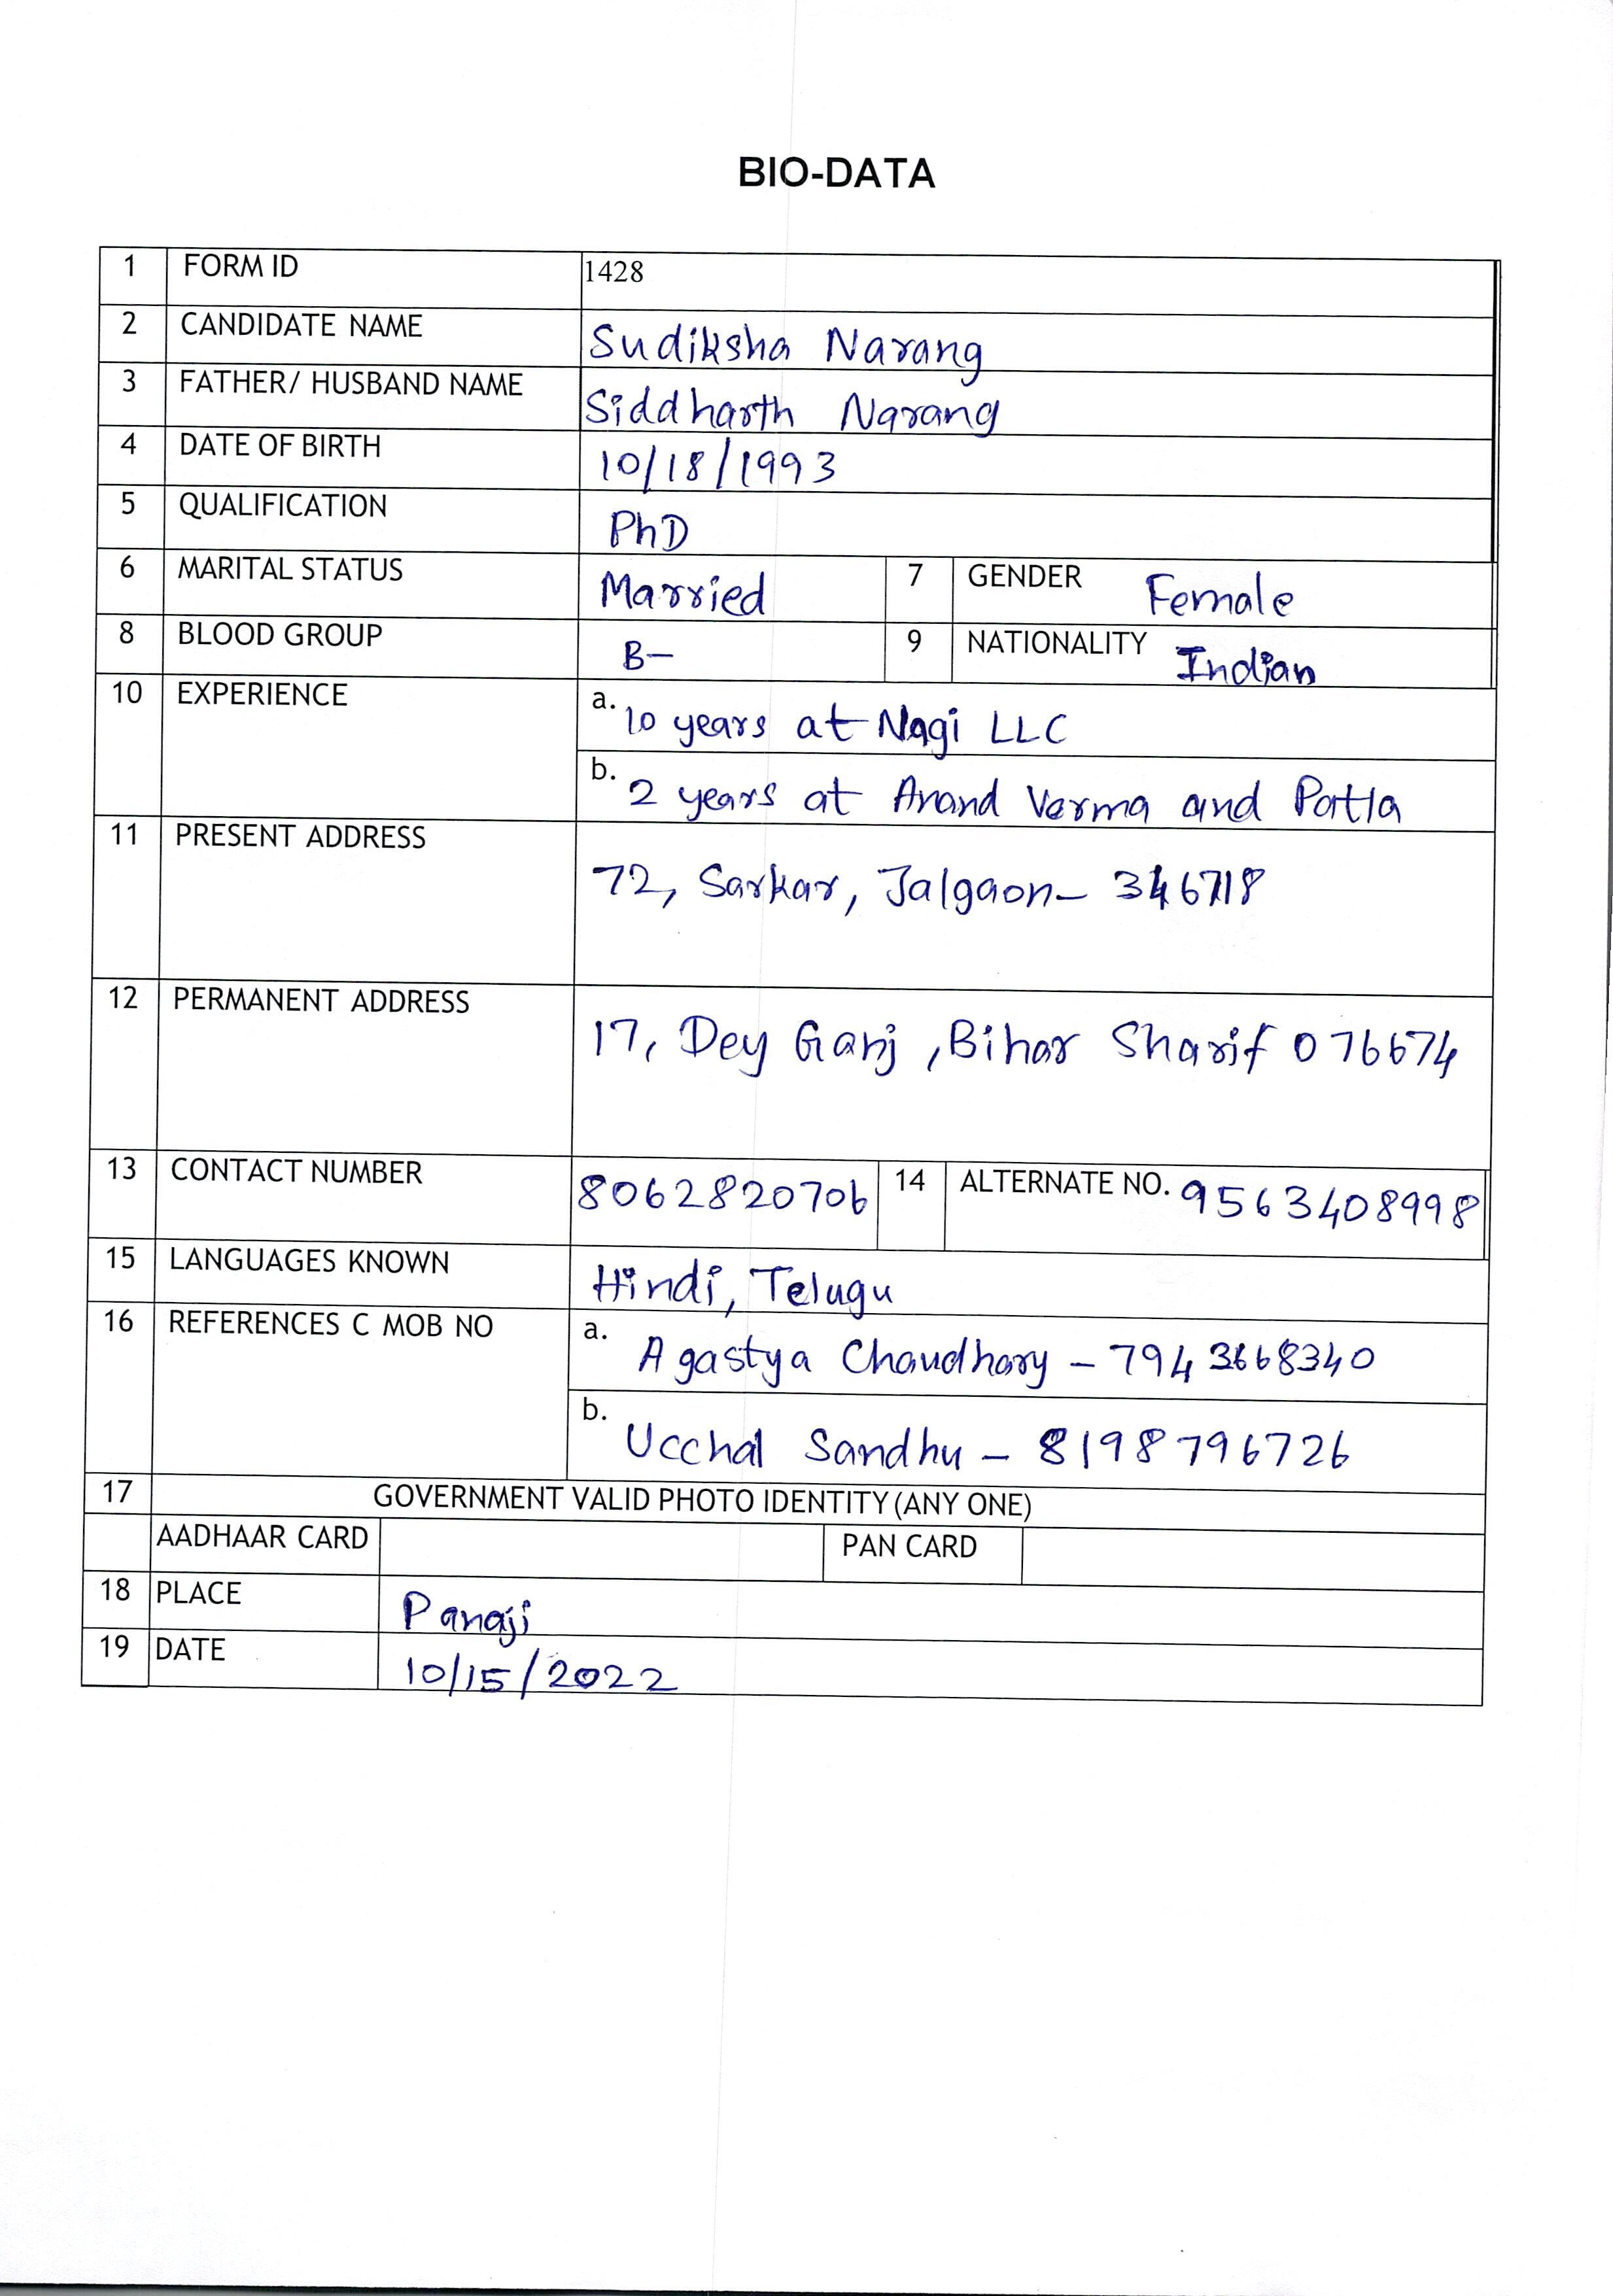 BIO-DATA
1 FORM ID 1428
2 CANDIDATE NAME Sudiksha Narang
3 FATHER/ HUSBAND NAME Siddharth Narang
4 DATE OF BIRTH 10/18/1993
5 QUALIFICATION PhD
6 MARITAL STATUS Married 7 GENDER Female
8 BLOOD GROUP B- 9 NATIONALITY Indian
10 EXPERIENCE a. 10 years at Nagi LLC
b. 2 years at Anand Verma and Patla
11 PRESENT ADDRESS
72, Sarkar, Jalgaon- 346718
12 PERMANENT ADDRESS
17, Dey Ganj, Bihar Sharif 076674
13 CONTACT NUMBER 8062820706 14 ALTERNATE NO. 9563408998
15 LANGUAGES KNOWN Hindi, Telugu
16 REFERENCES C MOB NO a. Agastya Chaudhary - 7943668340
b. Ucchal Sandhu - 8198796726
17 GOVERNMENT VALID PHOTO IDENTITY (ANY ONE)
AADHAAR CARD PAN CARD
18 PLACE Panaji
19 DATE 10/15/2022